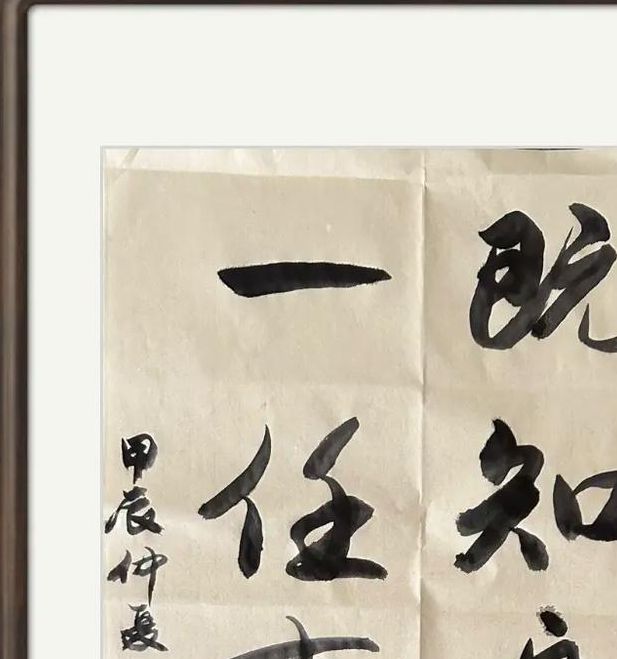 既知
一任
甲辰仲夏